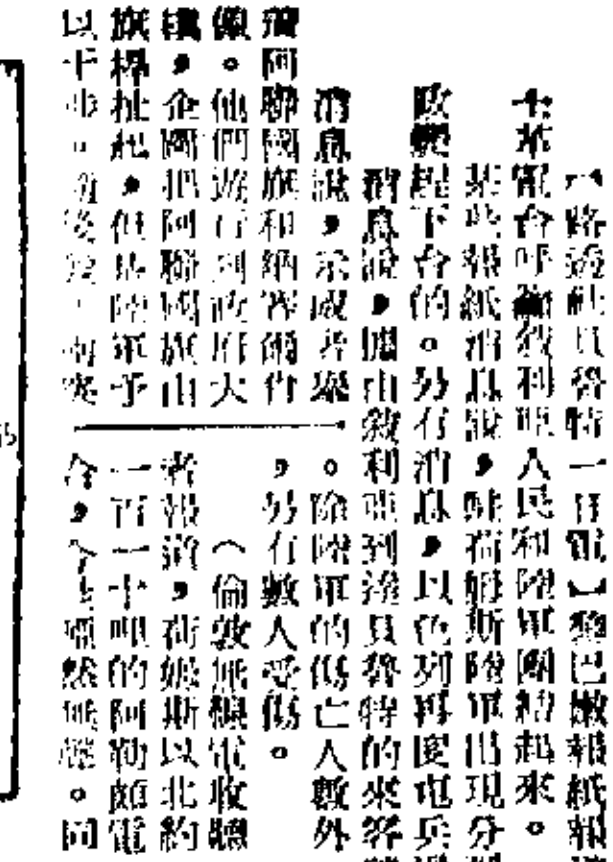 （路透社貝魯特一日電）黎巴嫩報紙報
士革電台呼籲敘利亞人民和陸軍團結起來。
某些報紙消息說，駐荷姆斯陸軍出現分
政變趕下台的。另有消息，以色列再度屯兵
消息說，據由敘利亞到達貝魯特的來客
消息說，示威者聚
阿聯國旗和納瑟爾肖
像。他們遊行到政府大
，企圖把阿聯國旗由
旗桿扯起，但為陸軍予
以干涉。衝突
。除陸軍的傷亡人數外
，另有數人受傷。
（倫敦無線電收聽
者報道，荷姆斯以北約
一百一十哩的阿勒頗電
台，今啞然無聲。同